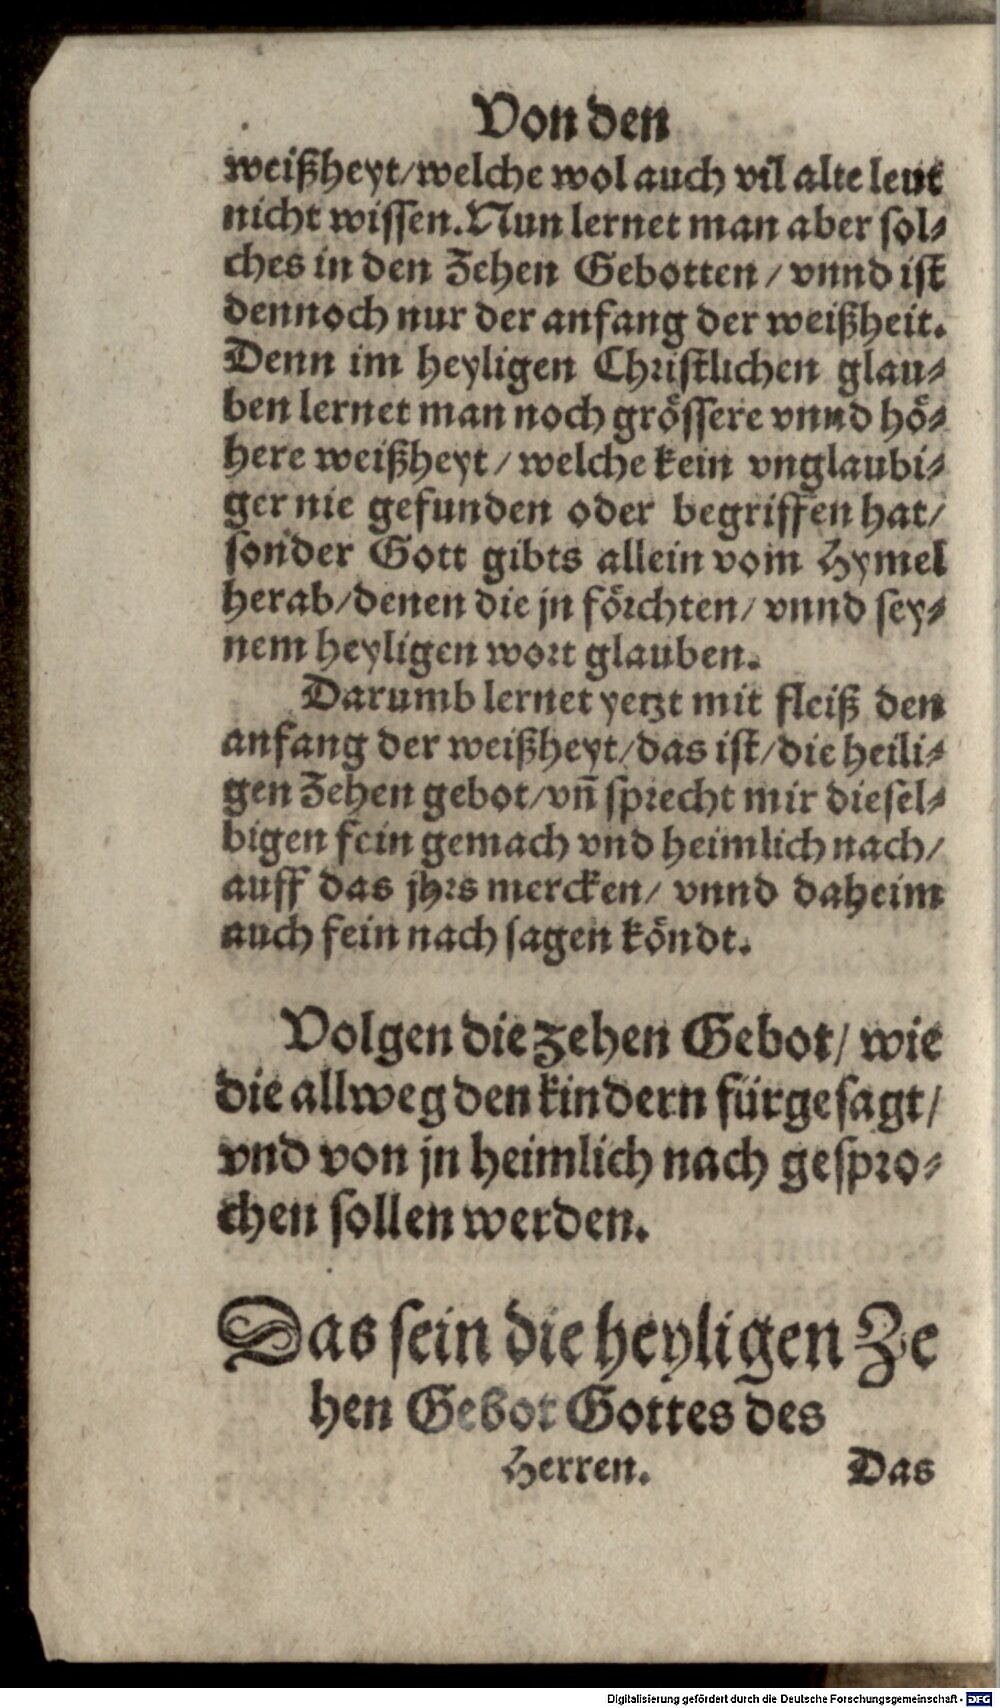 Von den
weißheyt/welche wol auch vil alte leut
nicht wissen. Nun lernet man aber sol⸗
ches in den Zehen Gebotten / vnnd ist
dennoch nur der anfang der weißheit.
Denn im heyligen Christlichen glau⸗
ben lernet man noch grössere vnnd hö⸗
here weißheyt / welche kein vnglaubi⸗
ger nie gefunden oder begriffen hat/
sonder Gott gibts allein vom Hymel
herab/denen die jn förchten/ vnnd sey⸗
nem heyligen wort glauben.
Darumb lernet yetzt mit fleiß den
anfang der weißheyt/das ist/die heili⸗
gen Zehen gebot/vñ sprecht mir diesel⸗
bigen fein gemach vnd heimlich nach/
auff das jhrs mercken/ vnnd daheim
auch fein nach sagen köndt.
Volgen die zehen Gebot/ wie
die allweg den kindern fürgesagt/
vnd von jn heimlich nach gespro⸗
chen sollen werden.
Das sein die heyligen Ze
hen Gebot Gottes des
Herren. Das
Digitalisierung gefördert durch die Deutsche Forschungsgemeinschaft - DFG